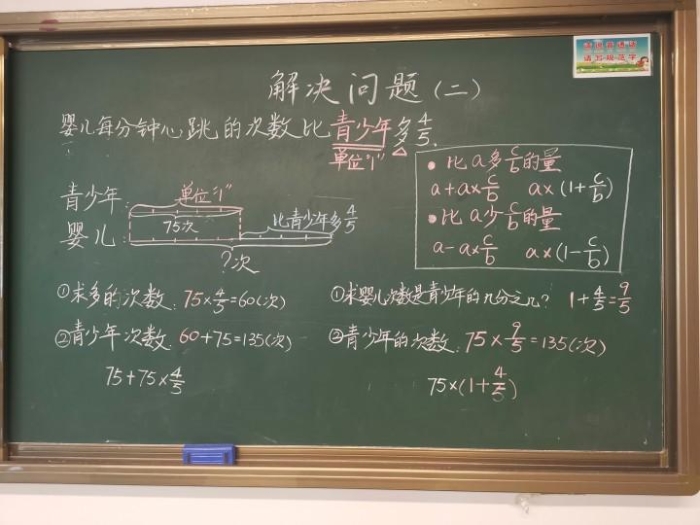 解决问题(二)
婴儿每分钟心跳的次数比青少年多4/5.
单位"1"
• 比a多c/b的量
a+a×c/b a×(1+c/b)
• 比a少c/b的量
a-a×c/b a×(1-c/b)
青少年: 单位"1"
婴儿: 75次 比青少年多4/5
?次
①求多的次数: 75×4/5=60(次)
②青少年次数: 60+75=135(次)
75+75×4/5
①求婴儿次数是青少年的几分之几? 1+4/5=9/5
②青少年的次数: 75×9/5=135(次)
75×(1+4/5)
请说普通话